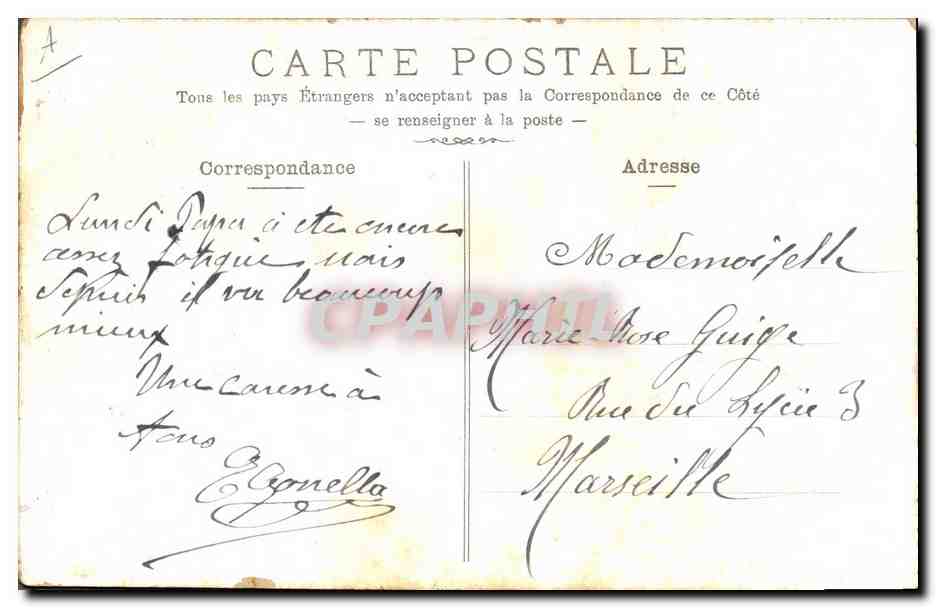 A
CARTE POSTALE
Tous les pays Étrangers n'acceptant pas la Correspondance de ce Côté
— se renseigner à la poste —
Correspondance
Adresse
Lundi Papa a été encore
assez fatigué mais
depuis il va beaucoup
mieux
Une caresse à
tous
Mademoiselle
Marie-Rose Guige
Rue du Lycée 3
Marseille
CPAPHIL